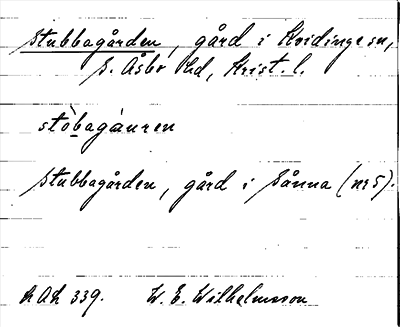 Stubbagården, gård i Kvidinge sn,
S. Åsbo hd, Krist. l.
stòbagáuren
Stubbagården, gård i Sånna (nr 5).
h A h 339. W. E. Wilhelmsson